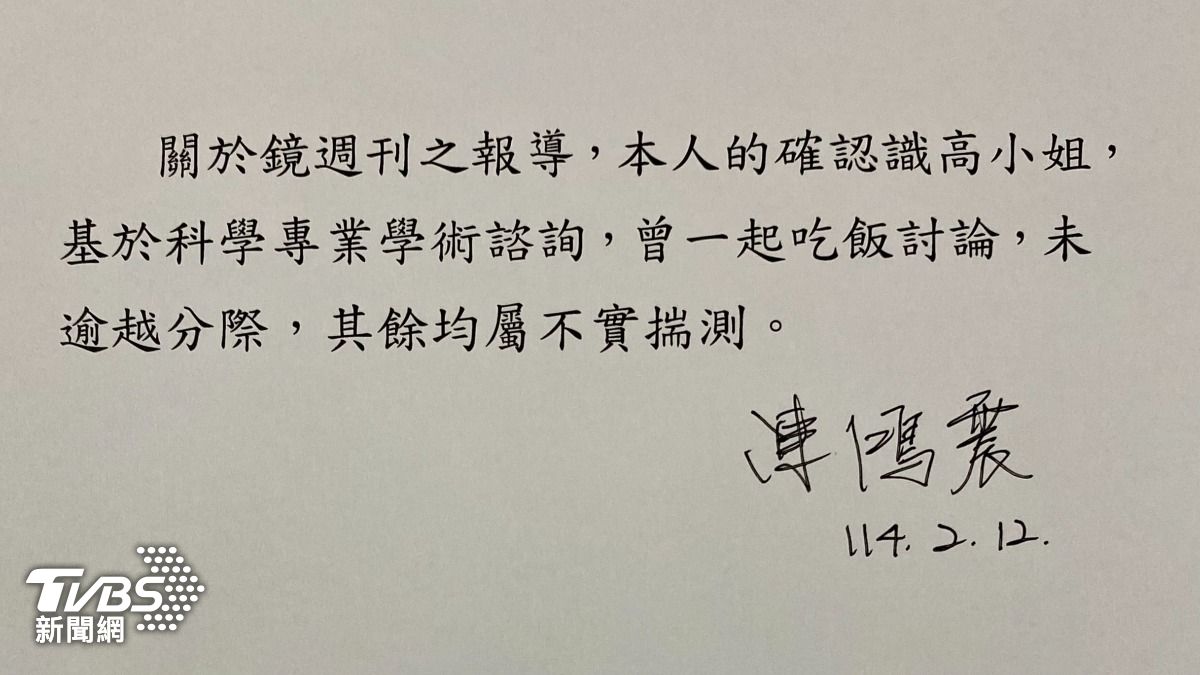 關於鏡週刊之報導，本人的確認識高小姐，
基於科學專業學術諮詢，曾一起吃飯討論，未
逾越分際，其餘均屬不實揣測。
陳鴻震
114.2.12.
TVBS
新聞網